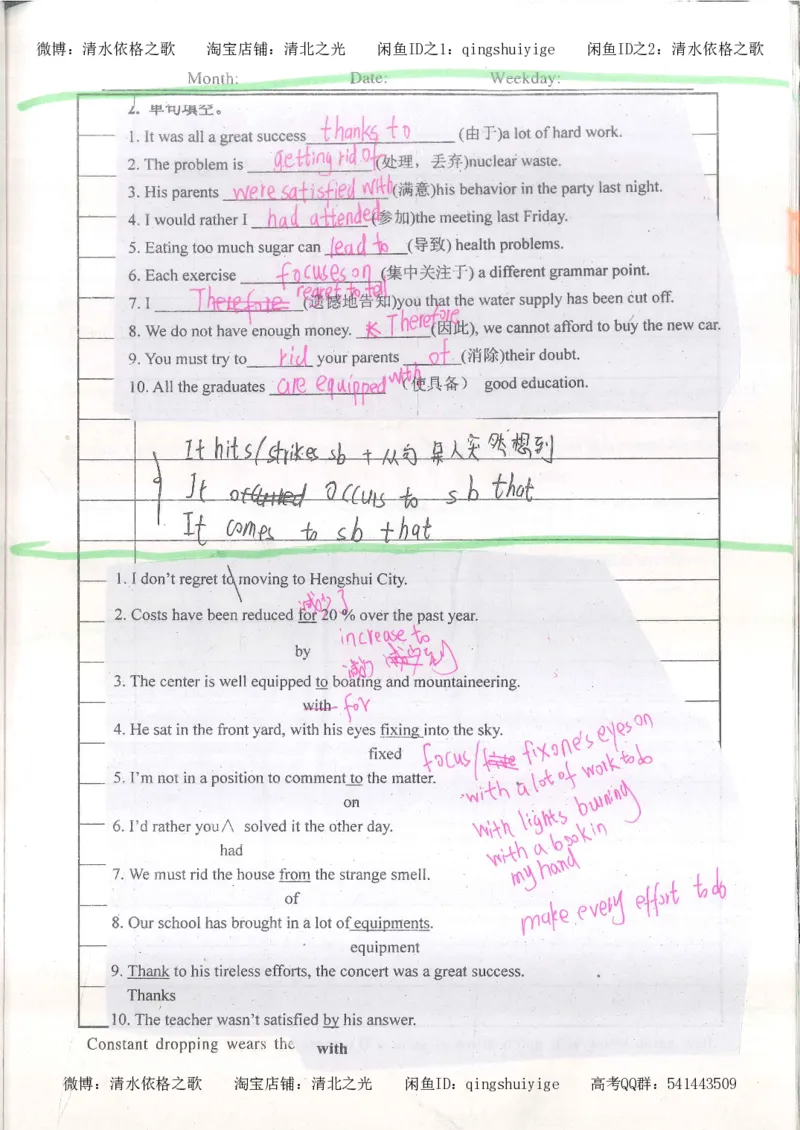 微博：清水依格之歌 淘宝店铺：清北之光 闲鱼ID之1：qingshuiyige 闲鱼ID之2：清水依格之歌
Month: Date: Weekday:
2. 单句填空。
1. It was all a great success thanks to (由于)a lot of hard work.
2. The problem is getting rid of (处理，丢弃)nuclear waste.
3. His parents were satisfied with (满意)his behavior in the party last night.
4. I would rather I had attended (参加)the meeting last Friday.
5. Eating too much sugar can lead to (导致) health problems.
6. Each exercise focuses on (集中关注于) a different grammar point.
7. I Therefore regret to tell (遗憾地告知)you that the water supply has been cut off.
8. We do not have enough money. Therefore (因此), we cannot afford to buy the new car.
9. You must try to rid your parents of (消除)their doubt.
10. All the graduates are equipped with (使具备) good education.
It hits/strikes sb + 从句 某人突然想到
It occurs to sb that
It comes to sb that
1. I don't regret to moving to Hengshui City.
减少了
2. Costs have been reduced for 20 % over the past year.
increase to
by
3. The center is well equipped to boating and mountaineering.
with for
4. He sat in the front yard, with his eyes fixing into the sky.
fixed
focus/ fix one's eyes on
5. I'm not in a position to comment to the matter.
with a lot of work to do
on
6. I'd rather you∧ solved it the other day.
with lights burning
had
with a book in
my hand
7. We must rid the house from the strange smell.
of
make every effort to do
8. Our school has brought in a lot of equipments.
equipment
9. Thank to his tireless efforts, the concert was a great success.
Thanks
10. The teacher wasn't satisfied by his answer.
Constant dropping wears the
with
微博：清水依格之歌 淘宝店铺：清北之光 闲鱼ID：qingshuiyige 高考QQ群：541443509